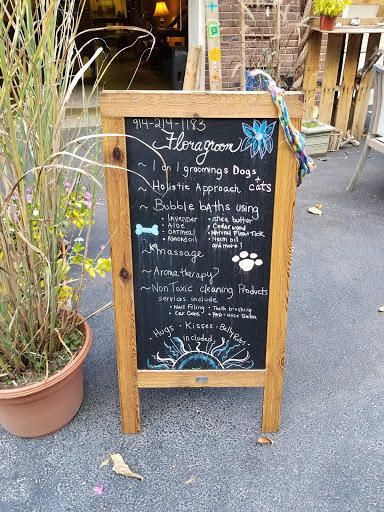 914-214-1183
Floragroom
~ 1 on 1 groomings Dogs
~ Holistic Approach, & cats
~ Bubble baths using
• lavender • shea butter
• Aloe • Cedarwood
• oatmeal • Natural Flea+Tick
• Almond oil • Neem oil
and more!
~ K9 massage
~ Aromatherapy
~ Non Toxic cleaning Products
services include
• Nail Filing • Teeth brushing
• Ear Care • PAD + Nose Balm
• Hugs • Kisses • Belly Rubs •
included